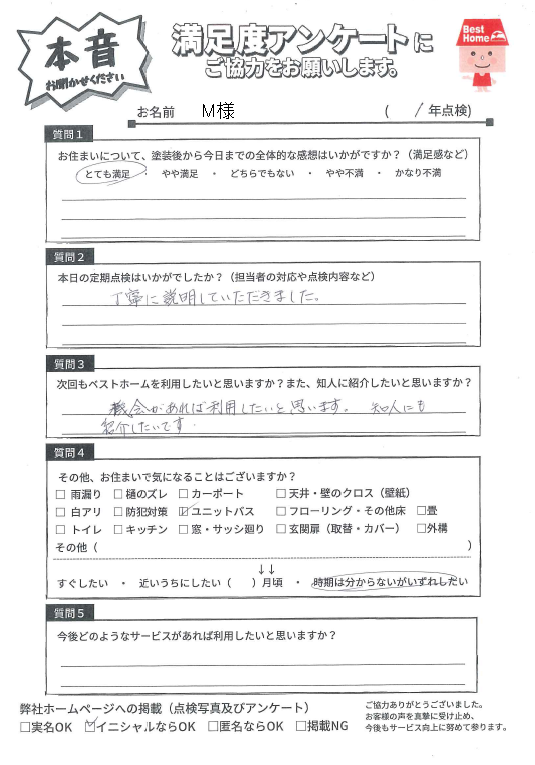 本音
お聞かせください
満足度アンケートに
ご協力をお願いします。
Best
Home
お名前 M様 ( / 年点検)
質問1
お住まいについて、塗装後から今日までの全体的な感想はいかがですか？（満足感など）
とても満足 ・ やや満足 ・ どちらでもない ・ やや不満 ・ かなり不満
質問2
本日の定期点検はいかがでしたか？（担当者の対応や点検内容など）
丁寧に説明していただきました。
質問3
次回もベストホームを利用したいと思いますか？また、知人に紹介したいと思いますか？
機会があれば利用したいと思います。 知人にも
紹介したいです
質問4
その他、お住まいで気になることはございますか？
□ 雨漏り □ 樋のズレ □ カーポート □ 天井・壁のクロス（壁紙）
□ 白アリ □ 防犯対策 ☑ ユニットバス □ フローリング・その他床 □畳
□ トイレ □ キッチン □ 窓・サッシ廻り □ 玄関扉（取替・カバー） □外構
その他（ ）
↓↓
すぐしたい ・ 近いうちにしたい（ ）月頃 ・ 時期は分からないがいずれしたい
質問5
今後どのようなサービスがあれば利用したいと思いますか？
弊社ホームページへの掲載（点検写真及びアンケート）
□実名OK ☑イニシャルならOK □匿名ならOK □掲載NG
ご協力ありがとうございました。
お客様の声を真摯に受け止め、
今後もサービス向上に努めて参ります。